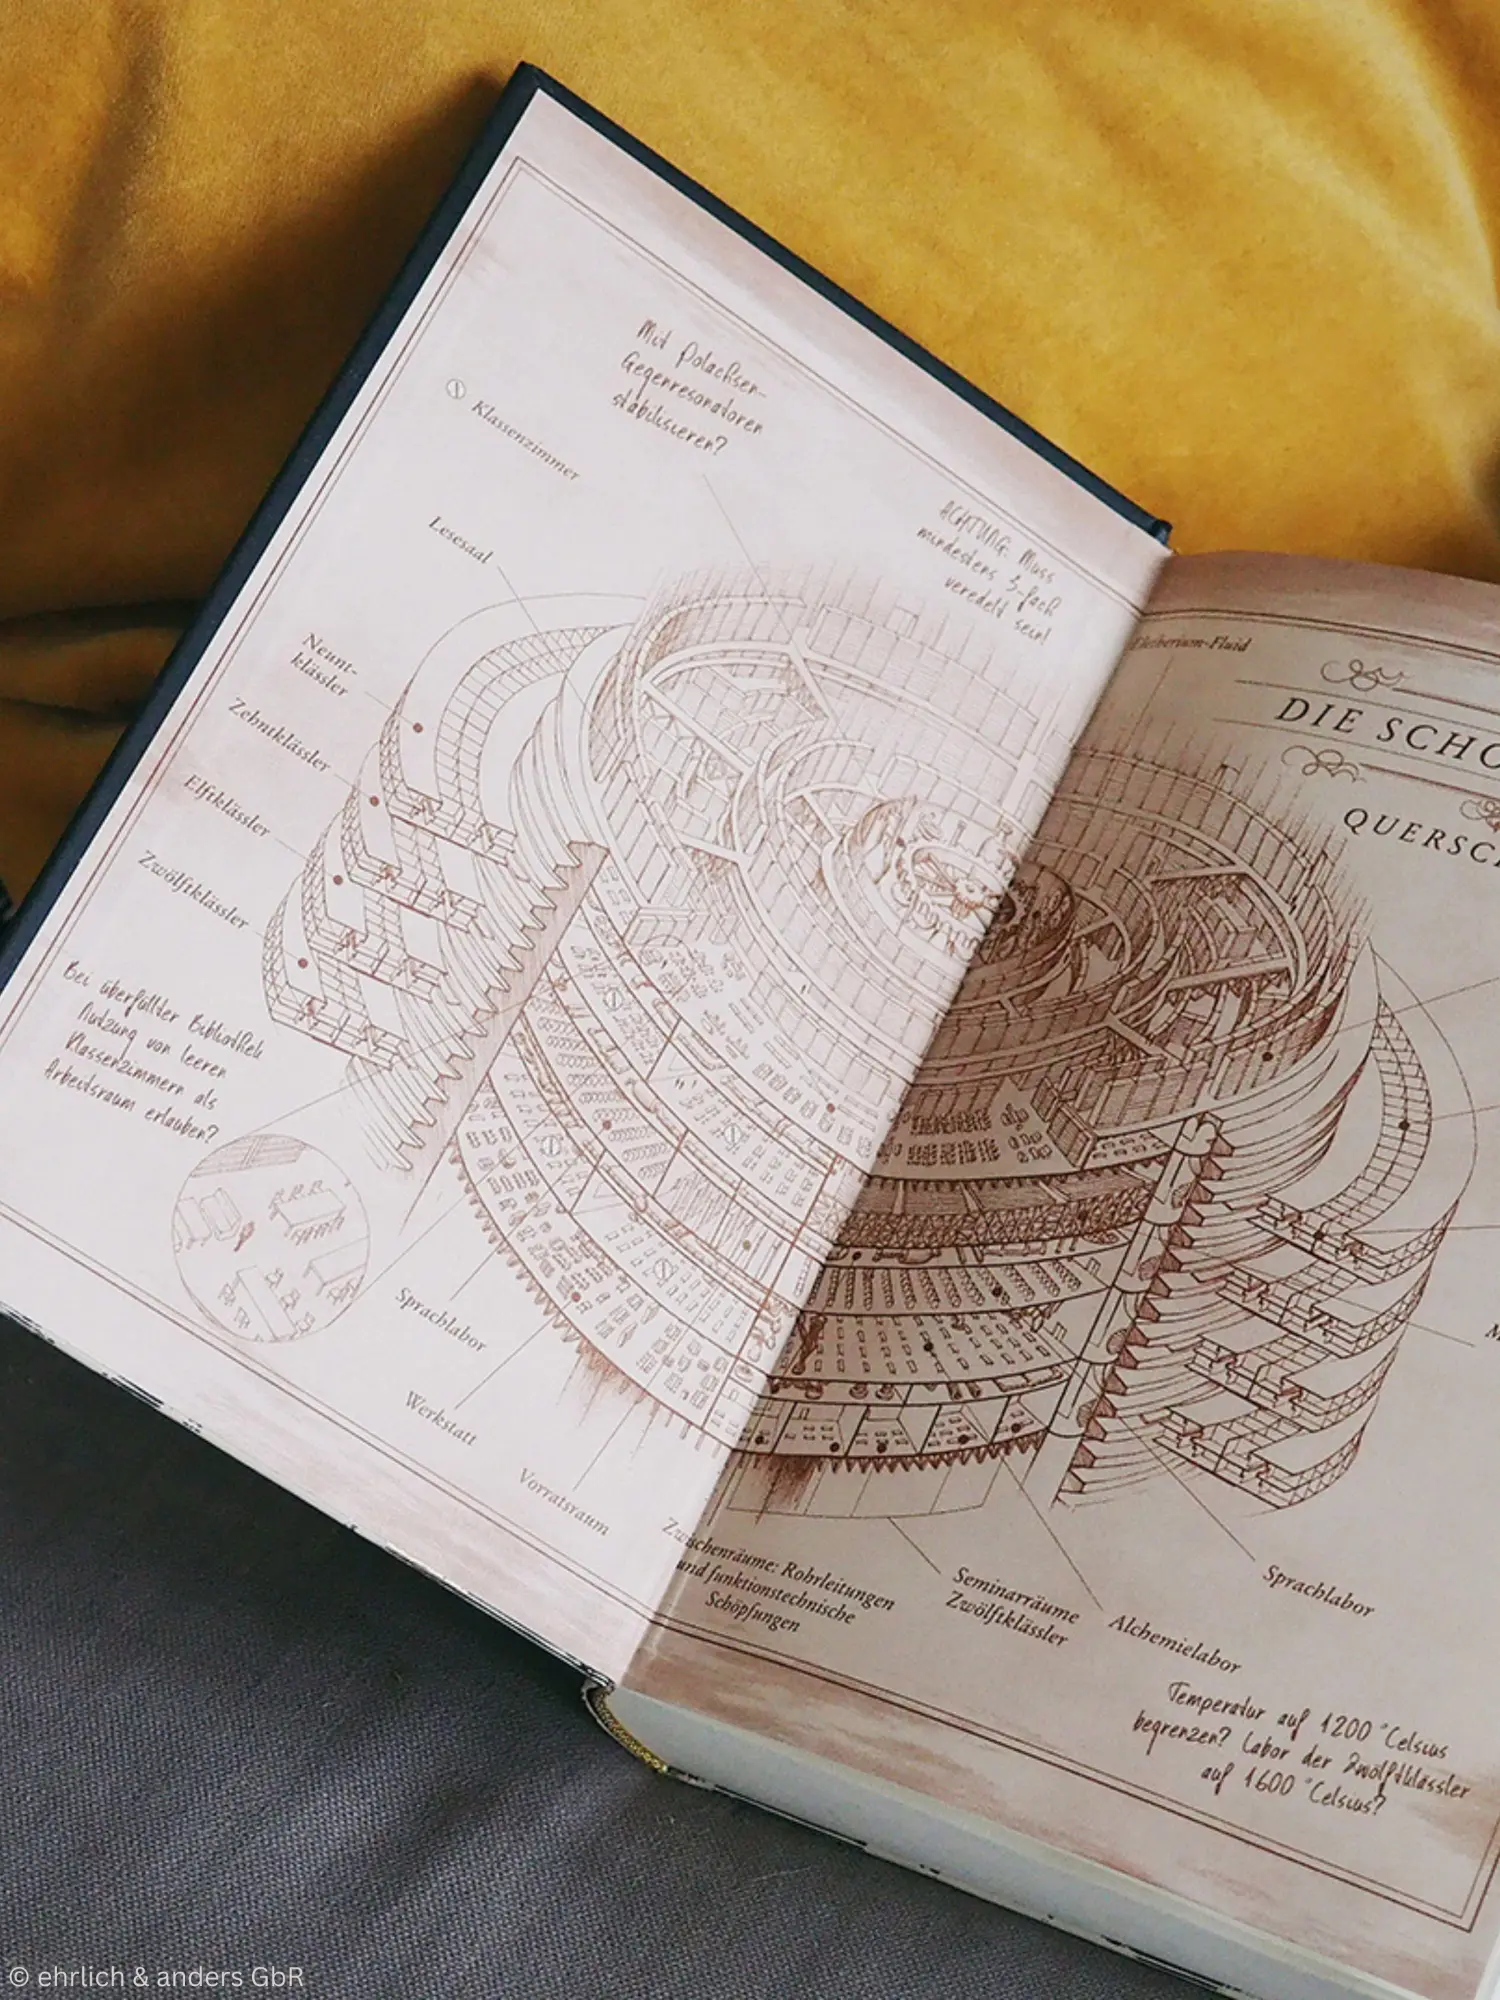 Mit Polachsen-
Gegenresonatoren
stabilisieren?
Klassenzimmer
Lesesaal
ACHTUNG: Muss
mindestens 3-fach
veredelt sein!
Neunt-
klässler
Zehntklässler
Elftklässler
Zwölftklässler
Bei überfüllter Bibliothek
Nutzung von leeren
Klassenzimmern als
Arbeitsraum erlauben?
Sprachlabor
Werkstatt
Vorratsraum
DIE SCHÖ
QUERSCH
Zwischenräume: Rohrleitungen
und funktionstechnische
Schöpfungen
Seminarräume
Zwölftklässler
Alchemielabor
Sprachlabor
Temperatur auf 1200 °Celsius
begrenzen? Labor der Zwölftklässler
auf 1600 °Celsius?
© ehrlich & anders GbR